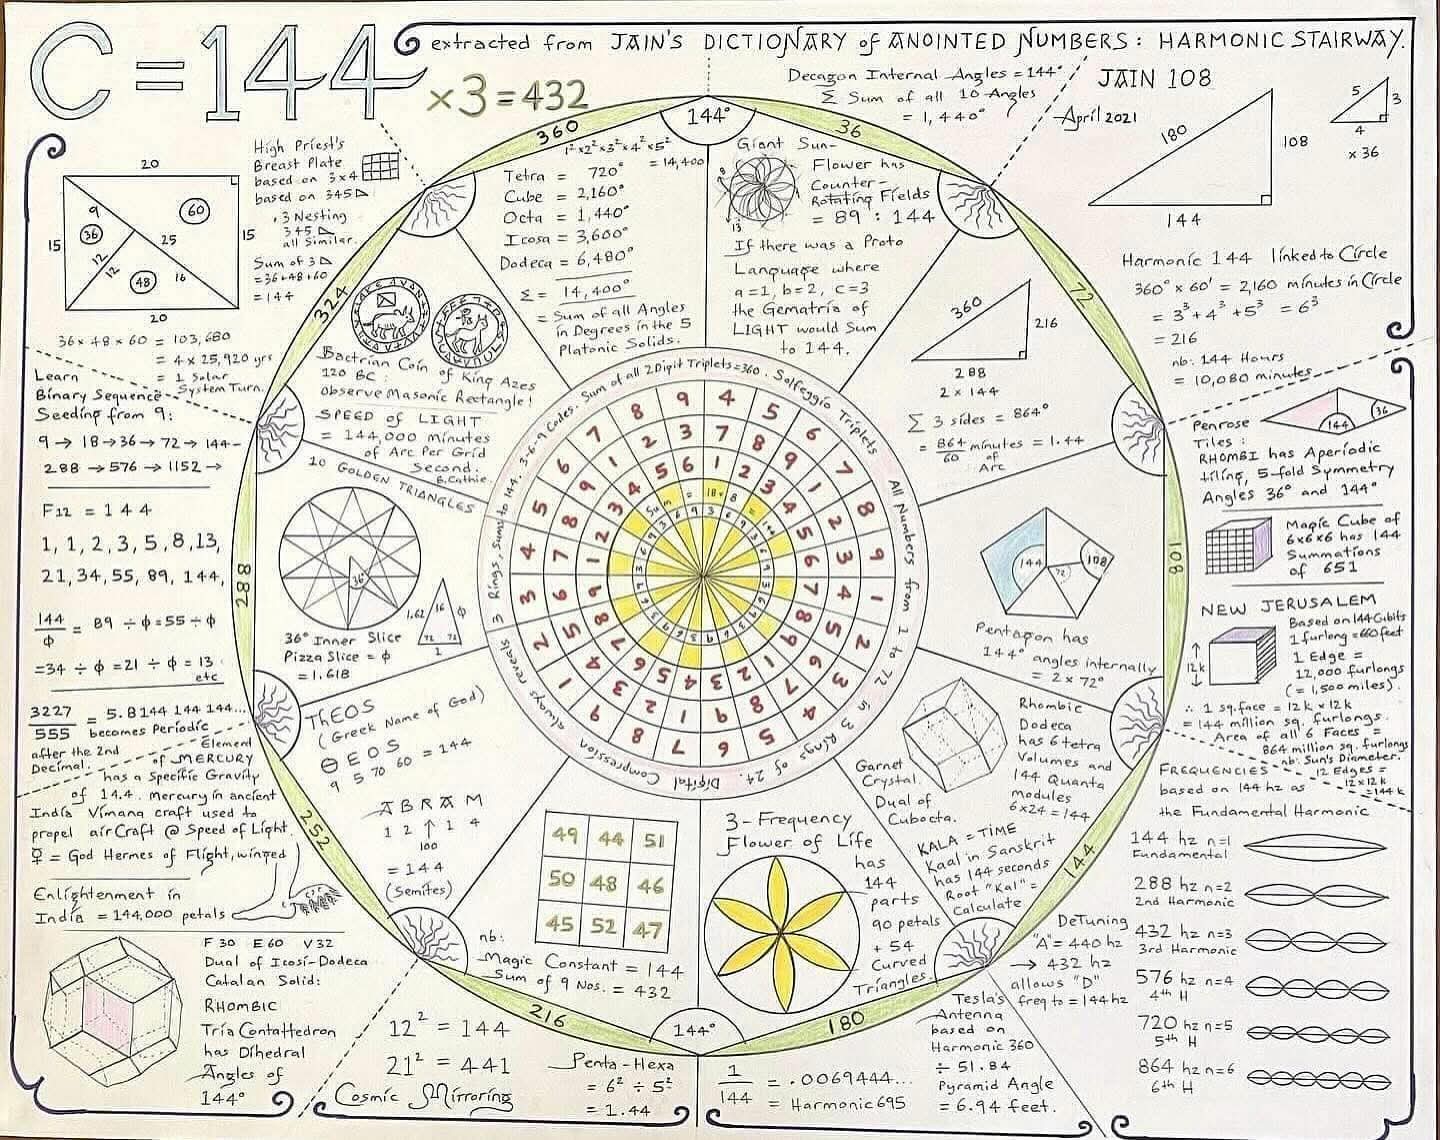 C = 144
extracted from JAIN'S DICTIONARY of ANOINTED NUMBERS: HARMONIC STAIRWAY.
×3 = 432
JAIN 108
April 2021
Decagon Internal Angles = 144°
Σ Sum of all 10 Angles
= 1,440°
High Priest's
Breast Plate
based on 3x4
based on 345
.3 Nesting
345
all Similar.
Sum of 3
=36+48+60
= 144
20
15
9
36
12
12
60
25
48
16
15
20
36 x 48 x 60 = 103,680
= 4 x 25,920 yrs
= 1 Solar
System Turn.
Learn
Binary Sequence
Seeding from 9:
9 → 18 → 36 → 72 → 144 -
288 → 576 → 1152 →
F12 = 144
1, 1, 2, 3, 5, 8, 13,
21, 34, 55, 89, 144,
144/ϕ = 89 ÷ ϕ = 55 ÷ ϕ
= 34 ÷ ϕ = 21 ÷ ϕ = 13
etc
3227/555 = 5.8144 144 144...
becomes Periodic
after the 2nd
Decimal.
Element
of MERCURY
has a Specific Gravity
of 14.4. Mercury in ancient
India Vimana craft used to
propel airCraft @ Speed of Light.
☿ = God Hermes of Flight, winged
Enlightenment in
India = 144,000 petals
F 30 E 60 V 32
Dual of Icosi-Dodeca
Catalan Solid:
RHOMBIC
Tria Contattedron
has Dihedral
Angles of
144°
360
36
72
108
144
180
216
252
288
324
144°
144°
1²x2²x3²x4²x5²
= 14,400
Tetra = 720°
Cube = 2,160°
Octa = 1,440°
Icosa = 3,600°
Dodeca = 6,480°
Σ = 14,400°
= Sum of all Angles
in Degrees in the 5
Platonic Solids.
Giant Sun-
Flower has
Counter-
Rotating Fields
= 89 : 144
8
13
If there was a Proto
Language where
a=1, b=2, c=3
the Gematria of
LIGHT would Sum
to 144.
Bactrian Coin of King Azes
120 BC:
observe Masonic Rectangle!
SPEED of LIGHT
= 144,000 minutes
of Arc Per Grid
Second.
B.Cathie.
10 GOLDEN TRIANGLES
36°
36° Inner Slice
Pizza Slice = ϕ
= 1.618
1.62
36
ϕ
72 72
1
360
216
288
2 x 144
Σ 3 sides = 864°
= 864/60 minutes = 1.44
of
Arc
144
72
108
Pentagon has
144° angles internally
= 2 x 72°
3 Rings, sums to 144. 3-6-9 Codes. Sum of all 2 Digit Triplets=360. Solfeggio Triplets
All Numbers from 1 to 72 is 3 Rings of 24.
Digital Compression always reveals
9 4 5 6 7 8 9 1 2 3 4 5 6 7 8 9 1 2 4 5 6 7 8
3 7 8 9 1 2 3 4 5 6 7 8 9 1 2 3 4 5 7 8 9 1 2
6 1 2 3 4 5 6 7 8 9 1 2 3 4 5 6 7 8 1 2 3 4 5
Sum = 18 x 8 = 144
ThEOS
(Greek Name of God)
Θ E O S
9 5 70 60 = 144
ABRAM
1 2 ↑ 1 4
100
= 144
(Semites)
49 44 51
50 48 46
45 52 47
nb:
Magic Constant = 144
Sum of 9 Nos. = 432
3 - Frequency
Flower of Life
has
144
parts
90 petals
+ 54
Curved
Triangles
Garnet
Crystal.
Dual of
Cubocta.
Rhombic
Dodeca
has 6 tetra
Volumes and
144 Quanta
modules
6x24 = 144
KALA = TIME
Kaal in Sanskrit
has 144 seconds
Root "Kal" =
Calculate
DeTuning
"A" = 440 hz
→ 432 hz
allows "D"
freq to = 144 hz
Tesla's
Antenna
based on
Harmonic 360
÷ 51.84
Pyramid Angle
= 6.94 feet.
12² = 144
21² = 441
Cosmic Mirroring
Penta-Hexa
= 6² ÷ 5²
= 1.44
1/144 = .0069444...
= Harmonic 695
180
108
144
5
3
4
x 36
Harmonic 144 linked to Circle
360° x 60' = 2,160 minutes in Circle
= 3³ + 4³ + 5³ = 6³
= 216
nb: 144 Hours
= 10,080 minutes
Penrose
Tiles:
144
36
RHOMBI has Aperiodic
tiling, 5-fold Symmetry
Angles 36° and 144°
Magic Cube of
6x6x6 has 144
Summations
of 651
NEW JERUSALEM
12k
Based on 144 Cubits
1 furlong = 660 feet
1 Edge =
12,000 furlongs
(= 1,500 miles).
∴ 1 sq.face = 12k x 12k
= 144 million sq. furlongs.
Area of all 6 Faces =
864 million sq. furlongs
nb: Sun's Diameter.
12 Edges =
12 x 12k
= 144 k
FREQUENCIES
based on 144 hz as
the Fundamental Harmonic
144 hz n=1
Fundamental
288 hz n=2
2nd Harmonic
432 hz n=3
3rd Harmonic
576 hz n=4
4th H
720 hz n=5
5th H
864 hz n=6
6th H